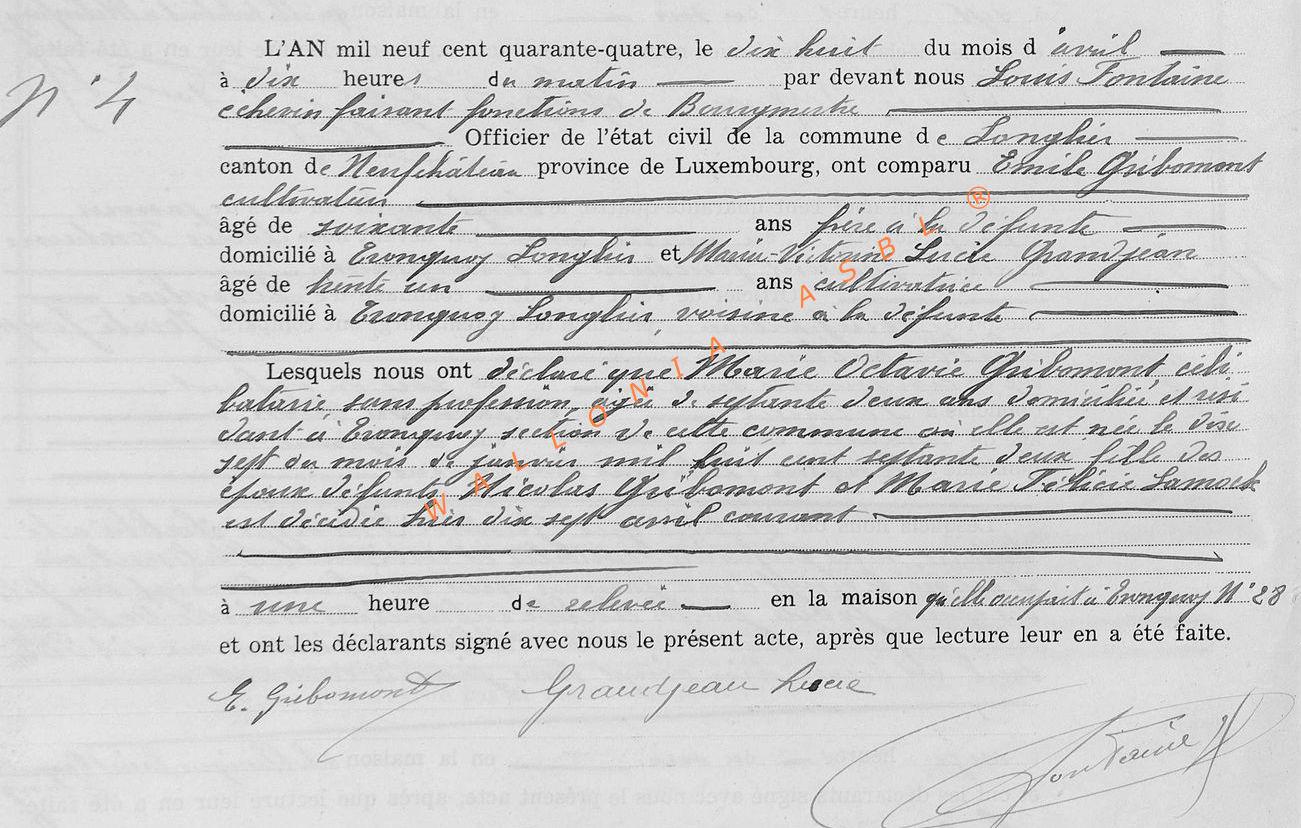 L'AN mil neuf cent quarante-quatre, le dix huit du mois d'avril
N° 4
à dix heures du matin par devant nous Louis Fontaine
échevin faisant fonctions de Bourgmestre
Officier de l'état civil de la commune de Longlier
canton de Neufchâteau province de Luxembourg, ont comparu Emile Gribomont
cultivateur
âgé de soixante ans frère à la défunte
domicilié à Tronquoy Longlier et Marie Victorine Lucie Grandjean
âgé de trente un ans cultivatrice
domicilié à Tronquoy Longlier, voisine à la défunte
Lesquels nous ont déclaré que Marie Octavie Gribomont, céli
bataire, sans profession, âgée de septante deux ans domiciliée et rési
dant à Tronquoy section de cette commune où elle est née le dix
sept du mois de janvier mil huit cent septante deux, fille des
époux défunts Nicolas Gribomont et Marie Félicie Lamock
est décédée hier dix sept avril courant
à une heure de relevée en la maison qu'elle occupait à Tronquoy N° 28
et ont les déclarants signé avec nous le présent acte, après que lecture leur en a été faite.
E. Gribomont Grandjean Lucie
Fontaine
WALLONIA ASBL ®